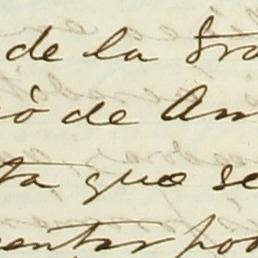 de la Gra
ió de Am
ta que se
entar po